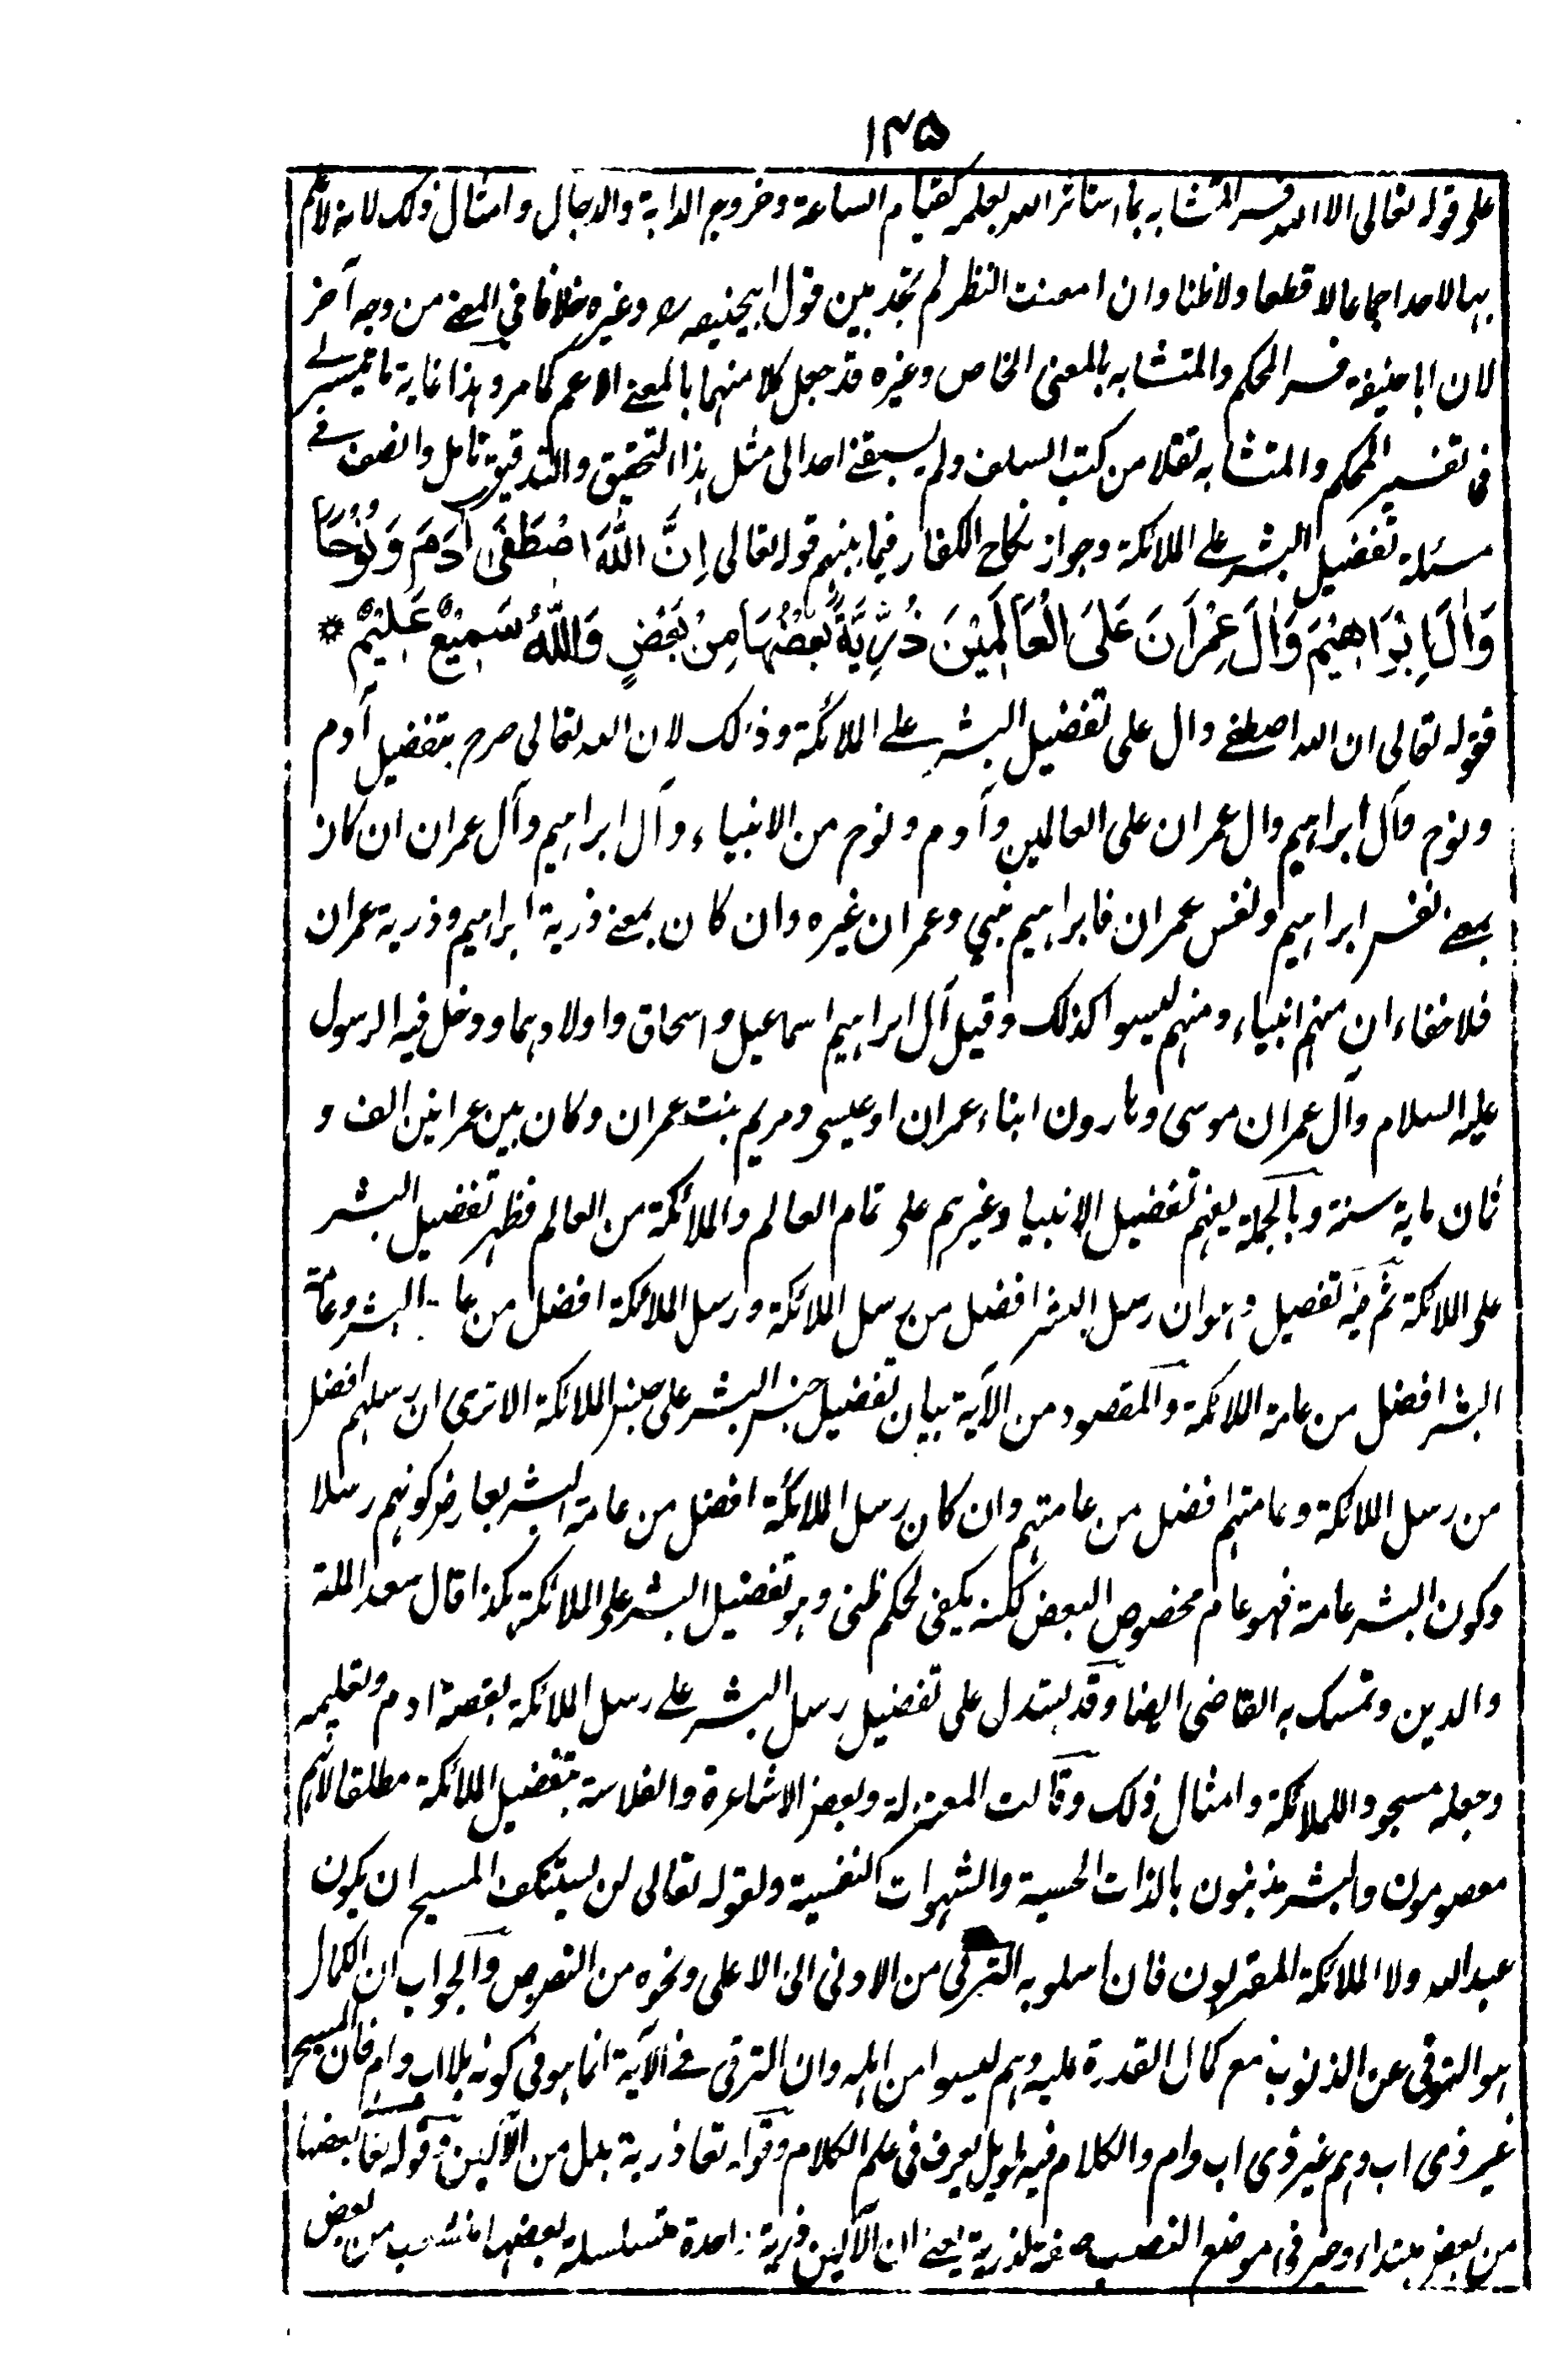 ١٣٥
على قوله تعالى الا الله فسر المتشابه بما استاثر الله بعلمه كقيام الساعة وخروج الدابة والدجال وامثال ذلك لانه لا علم
بها لاحد اجماعا لا قطعا ولا ظنا وان امعنت النظر لم تجد بين قول ابيحنيفه رح وغيره خلافا في المعنے من وجه آخر
لان ابا حنيفة فسر المحكم والمتشابه بالمعنى الخاص وغيره قد جعل كلا منهما بالمعنے الاعم كما مر وهذا غاية ما تيسر لے
فى تفسير المحكم والمتشابه نقلا من كتب السلف ولم يسبقنے احد الى مثل هذا التحقيق والتدقيق تامل وانصف فے
مسئلة تفضيل البشر علے الملائكة وجواز نكاح الكفار فيما بينهم قوله تعالى اِنَّ اللّٰهَ اصْطَفٰى اٰدَمَ وَنُوْحًا
وَاٰلَ اِبْرَاهِيْمَ وَاٰلَ عِمْرَانَ عَلَى الْعَالَمِيْنَ ذُرِّيَّةً بَعْضُهَا مِنْ بَعْضٍ وَاللّٰهُ سَمِيْعٌ عَلِيْمٌ *
فقوله تعالى ان الله اصطفے دال على تفضيل البشر علے الملائكة وذلك لان الله تعالى صرح بتفضيل آدم
ونوح وآل ابراهيم وال عمران على العالمين وآدم ونوح من الانبياء وآل ابراهيم وآل عمران ان كان
بمعنے نفس ابراهيم ونفس عمران فابراهيم نبي وعمران غيره وان كان بمعنے ذرية ابراهيم وذرية عمران
فلا خفاء ان منهم انبياء ومنهم ليسوا كذلك وقيل آل ابراهيم اسماعيل واسحاق واولادهما ودخل فيه الرسول
عليه السلام وآل عمران موسى وهارون ابناء عمران او عيسى ومريم بنت عمران وكان بين عمرانين الف و
ثمان ماية سنة وبالجملة يفهم تفضيل الانبيا وغيرهم على تمام العالم والملائكة من العالم فظهر تفضيل البشر
على الملائكة ثم فيه تفصيل وهو ان رسل البشر افضل من رسل الملائكة ورسل الملائكة افضل من عامة البشر وعامة
البشر افضل من عامة الملائكة والمقصود من الآية بيان تفضيل جنس البشر على جنس الملائكة الا ترى ان رسلهم افضل
من رسل الملائكة وعامتهم افضل من عامتهم وان كان رسل الملائكة افضل من عامة البشر بعارض كونهم رسلا
وكون البشر عامة فهو عام مخصوص البعض لكنه يكفى لحكم ظنى وهو تفضيل البشر على الملائكة هكذا قال سعد الملة
والدين وتمسك به القاضى ايضا وقد يستدل على تفضيل رسل البشر علے رسل الملائكة بقصة ادم وتعليمه
وجعله مسجودا للملائكة وامثال ذلك وقالت المعتزلة وبعض الاشاعرة والفلاسة بتفضيل الملائكة مطلقا لانهم
معصومون والبشر مذنبون بالذات الحسية والشهوات النفسية ولقوله تعالى لن يستنكف المسيح ان يكون
عبدا لله ولا الملائكة المقربون فان اسلوبه الترقى من الادنى الى الاعلى ونحوه من النصوص والجواب ان الكمال
هو التوقى عن الذنوب مع كمال القدرة عليه وهم ليسوا من اهله وان الترقى فے الآية انما هو فى كونه بلا اب وام فان المسيح
غير ذى اب وهم غير ذى اب وام والكلام فيه طويل يعرف فى علم الكلام وقوله تعا ذرية بدل من الآلين وقوله تعا بعضها
من بعض مبتداء وخبر فى موضع النصب صفة لذرية يعنے ان الآلين ذرية واحدة متسلسلة بعضها منشعب من بعض